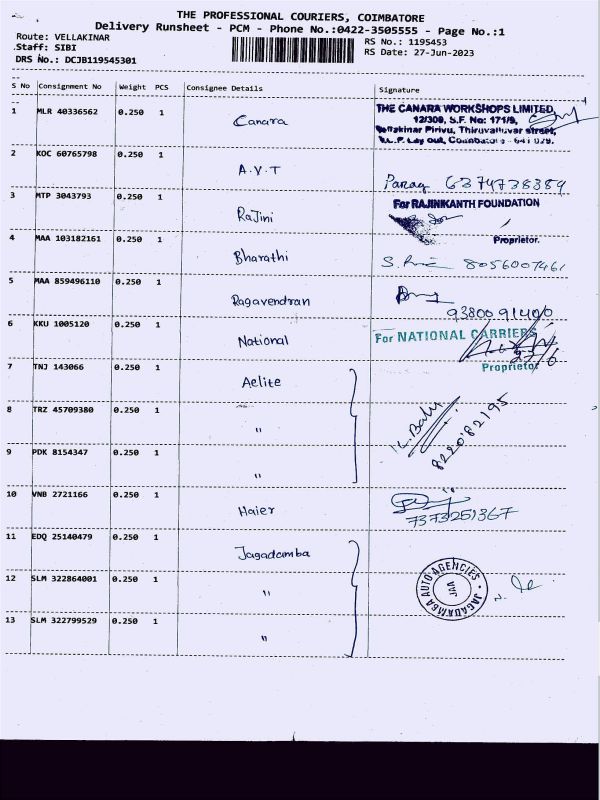 THE PROFESSIONAL COURIERS, COIMBATORE
Delivery Runsheet - PCM - Phone No.:0422-3505555 - Page No.:1
Route: VELLAKINAR
RS No.: 1195453
Staff: SIBI
RS Date: 27-Jun-2023
DRS No.: DCJB119545301
S No Consignment No Weight PCS Consignee Details Signature
1 MLR 40336562 0.250 1 Canara
THE CANARA WORKSHOPS LIMITED,
12/309, S.F. No: 171/9,
Vellakinar Pirivu, Thiruvalluvar street,
Lay out, Coimbatore - 641 029.
2 KOC 60765798 0.250 1 A.V.T Parag 6374738389
3 MTP 3043793 0.250 1 Rajini
For RAJINIKANTH FOUNDATION
Proprietor.
4 MAA 103182161 0.250 1 Bharathi 8056007461
5 MAA 859496110 0.250 1 Ragavendran
9380091400
6 KKU 1005120 0.250 1 National
For NATIONAL CARRIERS
27/6
Proprietor
7 TNJ 143066 0.250 1 Aelite
8 TRZ 45709380 0.250 1 "
K. Balu
822082195
9 PDK 8154347 0.250 1 "
10 VNB 2721166 0.250 1 Haier
7373251367
11 EDQ 25140479 0.250 1 Jagadamba
12 SLM 322864001 0.250 1 "
JAGADAMBA AUTO AGENCIES
13 SLM 322799529 0.250 1 "